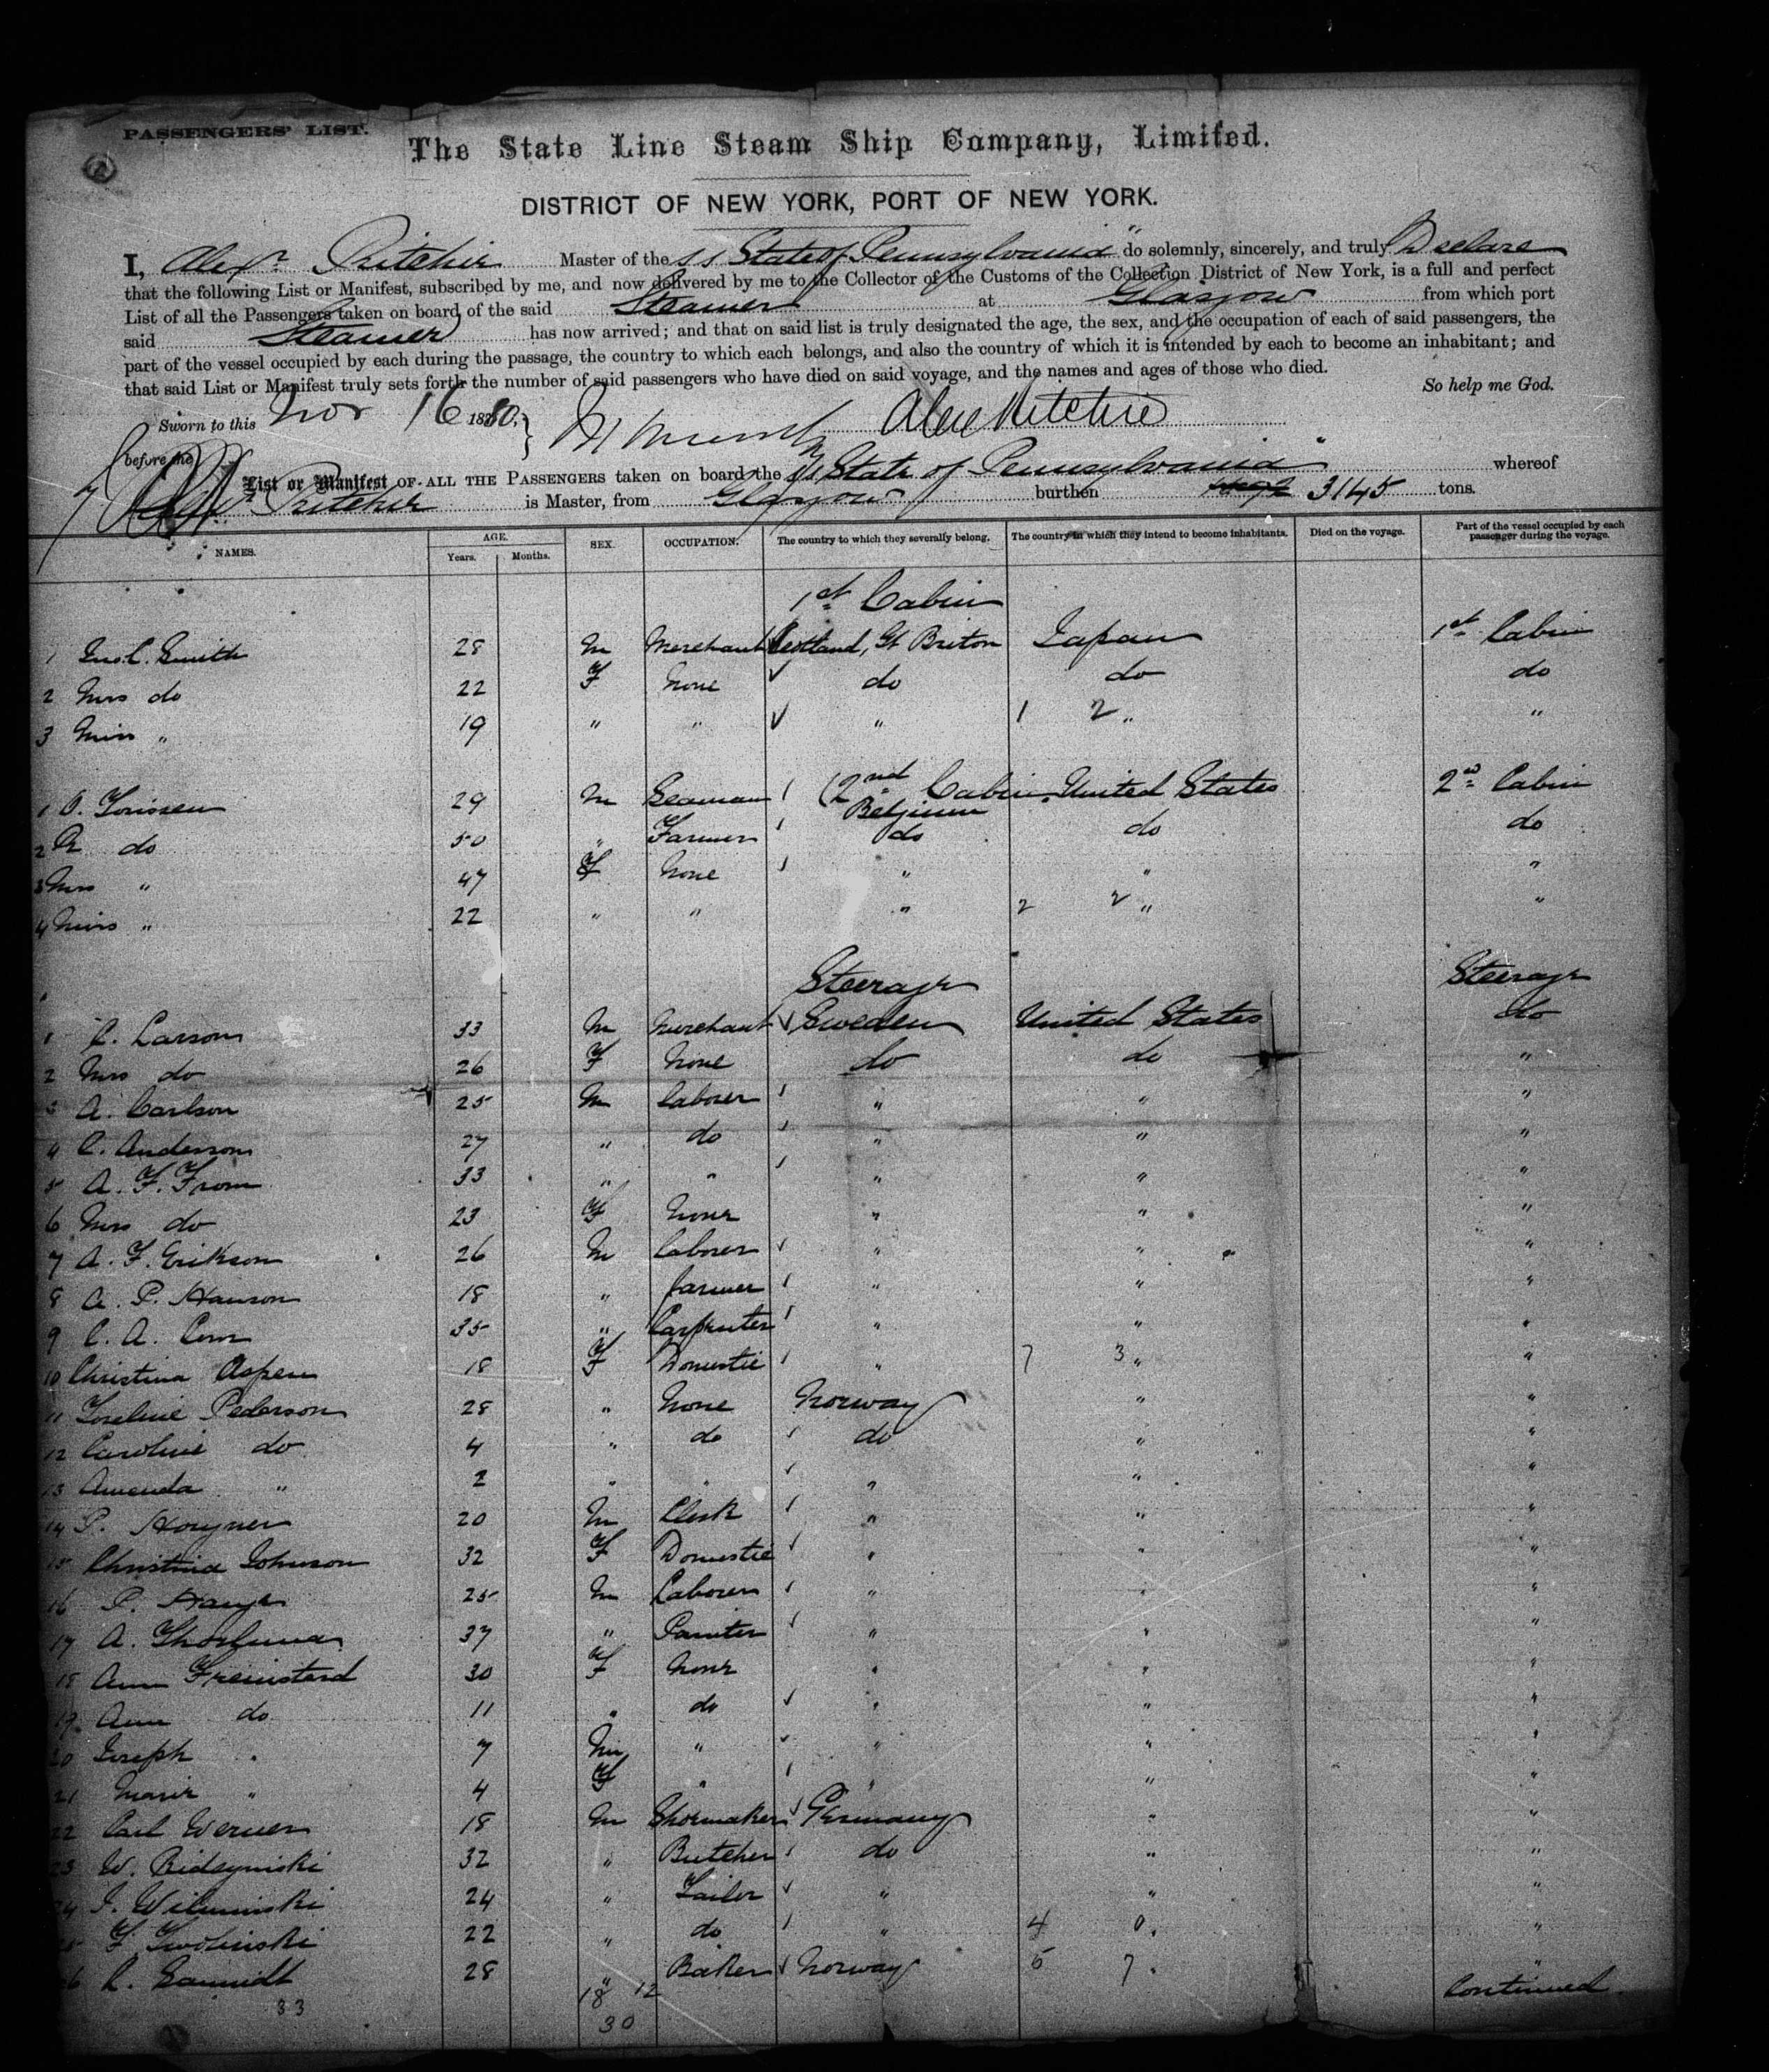 PASSENGERS' LIST.
The State Line Steam Ship Company, Limited.
DISTRICT OF NEW YORK, PORT OF NEW YORK.
I, Alexr Ritchie Master of the ss State of Pennsylvania" do solemnly, sincerely, and truly Declare
that the following List or Manifest, subscribed by me, and now delivered by me to the Collector of the Customs of the Collection District of New York, is a full and perfect
List of all the Passengers taken on board of the said Steamer at Glasgow from which port
said Steamer has now arrived; and that on said list is truly designated the age, the sex, and the occupation of each of said passengers, the
part of the vessel occupied by each during the passage, the country to which each belongs, and also the country of which it is intended by each to become an inhabitant; and
that said List or Manifest truly sets forth the number of said passengers who have died on said voyage, and the names and ages of those who died.
So help me God.
Sworn to this Nov 16 1880, Alex Ritchie
before me
List or Manifest OF ALL THE PASSENGERS taken on board the SS State of Pennsylvania" whereof
Alexr Ritchie is Master, from Glasgow burthen 3145 tons.
NAMES. AGE. Years. Months. SEX. OCCUPATION. The country to which they severally belong. The country in which they intend to become inhabitants. Died on the voyage. Part of the vessel occupied by each passenger during the voyage.
1st Cabin
1 Jno. C. Smith 28 M Merchant Scotland, Gt Briton Japan 1st Cabin
2 Mrs do 22 F None do do do
3 Miss " 19 " " " 1 2 " "
2nd Cabin
1 J. Jorissen 29 M Seaman Belgium United States 2nd Cabin
2 R do 50 " Farmer do do do
3 Mrs " 47 F None " " "
4 Miss " 22 " " " 2 2 " "
Steerage Steerage
1 C. Larson 33 M Merchant Sweden United States do
2 Mrs do 26 F None do do "
3 A. Carlson 25 M Laborer " " "
4 C. Anderson 27 " do " " "
5 A. F. From 33 " " " " "
6 Mrs do 23 F None " " "
7 A. F. Erikson 26 M Laborer " " "
8 A. P. Hanson 18 " farmer " " "
9 C. A. 35 " Carpenter " " "
10 Christina Aspen 18 F Domestic " 7 3 " "
11 Joseline Pederson 28 " None Norway " "
12 Caroline do 4 " do do " "
13 Amanda " 2 " " " " "
14 P. 20 M Clerk " " "
15 Christina Johnson 32 F Domestic " " "
16 P. Hauge 25 M Laborer " " "
17 A. 37 " Painter " " "
18 Ann Freinsterd 30 F None " " "
19 Ann do 11 " do " " "
20 Joseph " 7 M " " " "
21 Marie " 4 F " " " "
22 Carl Werner 18 M Shoemaker Germany " "
23 W. 32 " Butcher do " "
24 J. Wiluminski 24 " Tailor " " "
25 F. Zwolinski 22 " do " 4 0 "
26 C. Samuidt 28 " Baker Norway 5 7 "
33 18 12 Continued
30